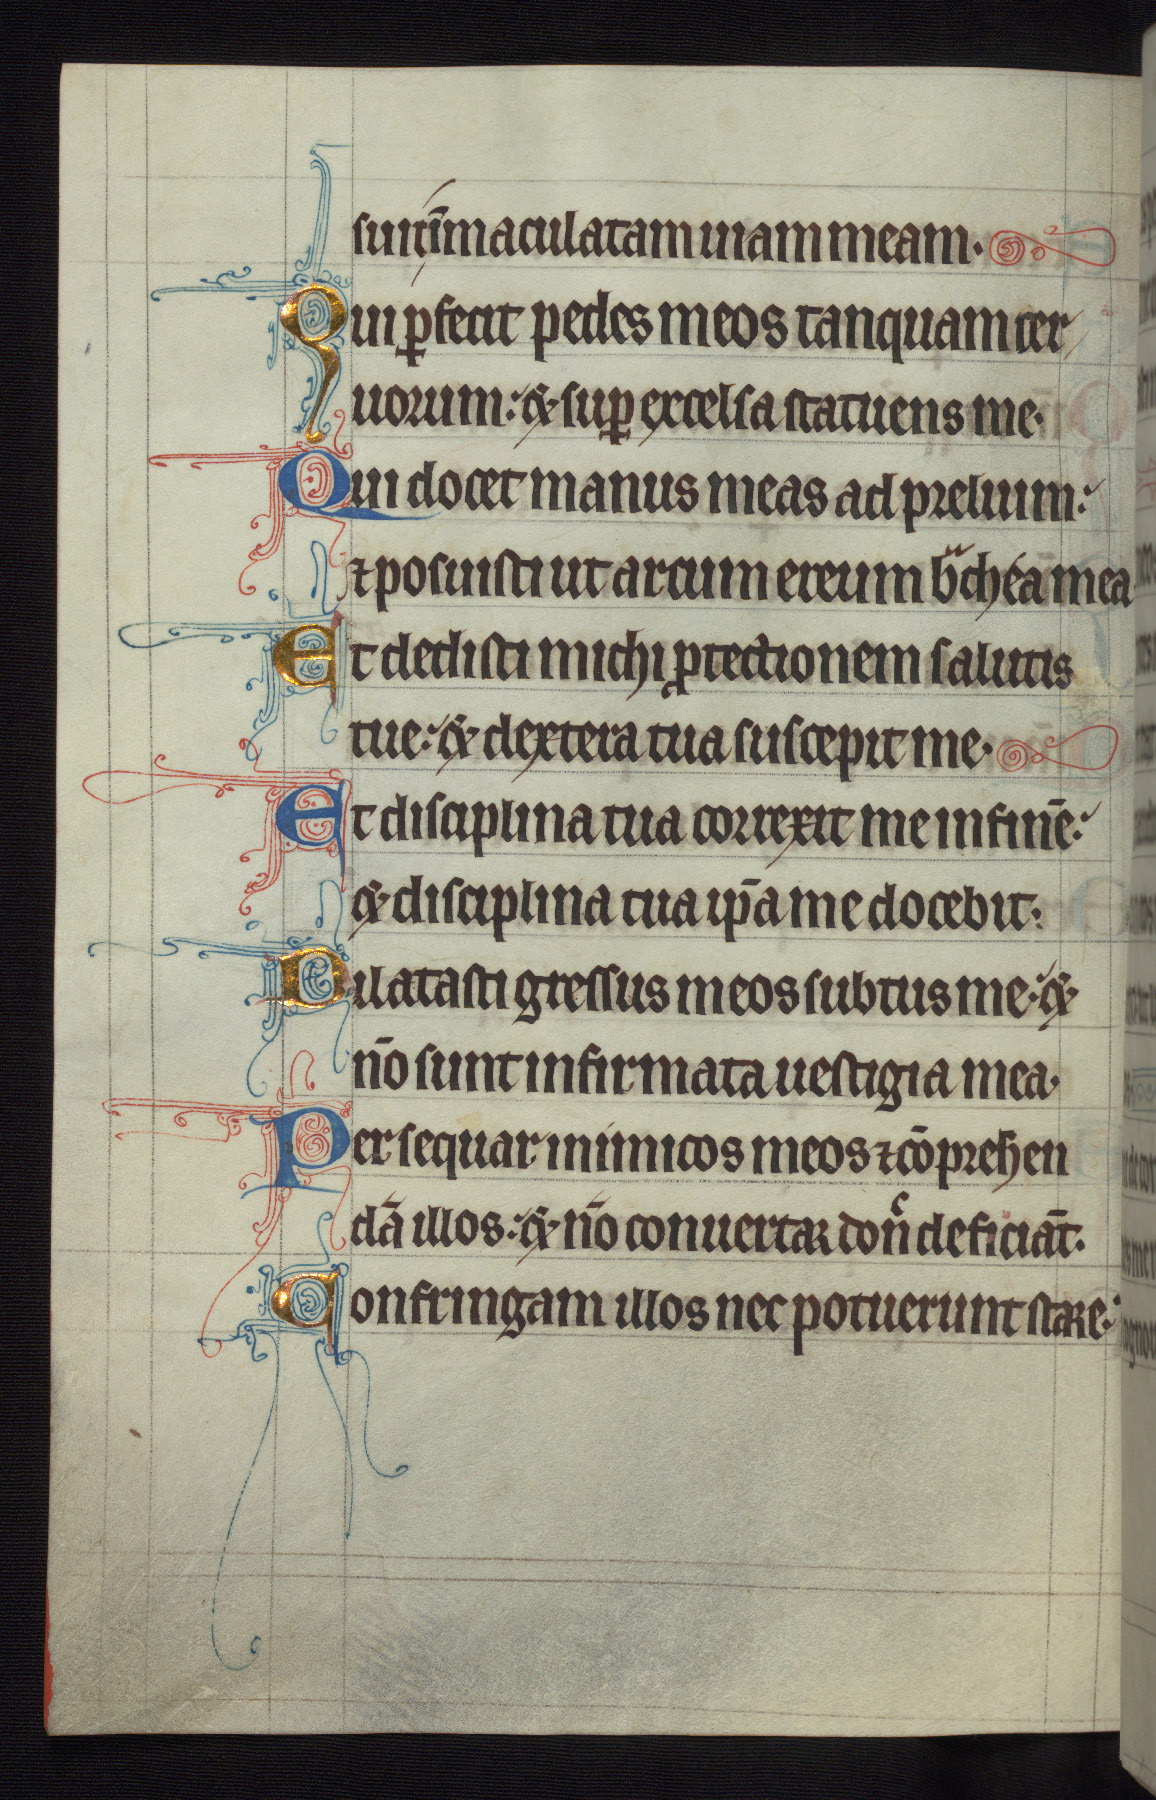 suit īmaculatam uiam meam.
Qui ꝑfecit pedes meos tanquam cer
uorum: & suꝑ excelsa statuens me.
Qui docet manus meas ad prelium:
⁊ posuisti ut arcum ereum bͣchéa mea
Et dedisti michi ꝓtectionem salutis
tue: & dextera tua suscepit me.
Et disciplina tua correxit me in finē:
& disciplina tua ip̄a me docebit.
Dilatasti gressus meos subtus me: &
nō sunt infirmata uestigia mea.
Persequar inimicos meos ⁊ cōprehen
dā illos: & nō conuertar don̄c deficiāt.
Confringam illos nec potuerunt stare: